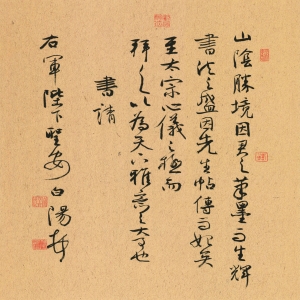 山陰勝境因君之筆墨而生輝
書法之盛因先生帖傳而始矣
至太宗心儀之極而
拜之以為天下雅之大者也
書請
右軍陛下聖安白陽